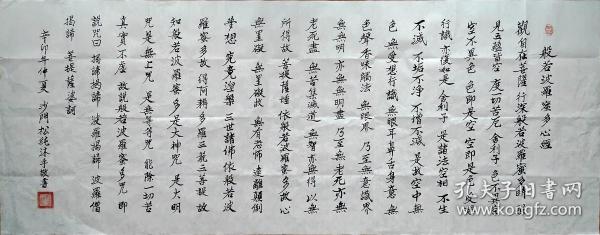 般若波羅蜜多心經
觀自在菩薩 行深般若波羅蜜多時 照
見五蘊皆空 度一切苦厄 舍利子 色不異
空 空不異色 色即是空 空即是色 受想
行識 亦復如是 舍利子 是諸法空相 不生
不滅 不垢不淨 不增不減 是故空中無
色 無受想行識 無眼耳鼻舌身意 無
色聲香味觸法 無眼界 乃至無意識界
無無明 亦無無明盡 乃至無老死 亦無
老死盡 無苦集滅道 無智亦無得 以無
所得故 菩提薩埵 依般若波羅蜜多故 心
無罣礙 無罣礙故 無有恐怖 遠離顛倒
夢想 究竟涅槃 三世諸佛 依般若波
羅蜜多故 得阿耨多羅三藐三菩提 故
知般若波羅蜜多 是大神咒 是大明
咒 是無上咒 是無等等咒 能除一切苦
真實不虛 故說般若波羅蜜多咒 即
說咒曰 揭諦揭諦 波羅揭諦 波羅僧
揭諦 菩提薩婆訶
辛卯年仲夏 沙門松純沐手敬書
孔夫子旧书网